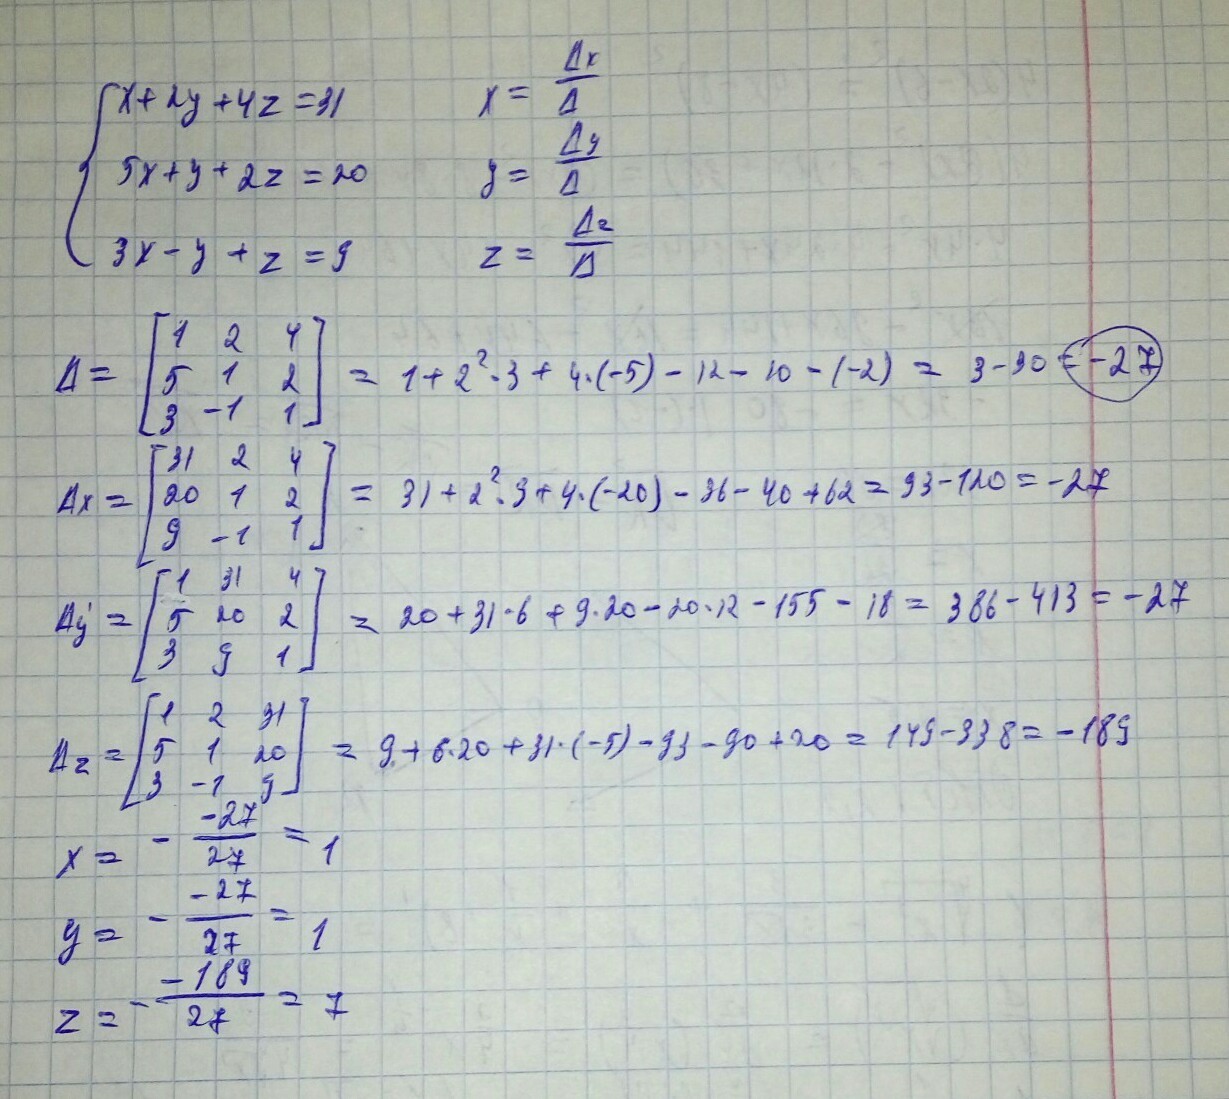 x+2y+4z=31 x = Δx/Δ
5x+y+2z=20 y = Δy/Δ
3x-y+z=9 z = Δz/Δ
Δ = [1 2 4
5 1 2
3 -1 1] = 1+2²·3+4·(-5)-12-10-(-2) = 3-30 = -27
Δx = [31 2 4
20 1 2
9 -1 1] = 31+2²·9+4·(-20)-36-40+62 = 93-120 = -27
Δy = [1 31 4
5 20 2
3 9 1] = 20+31·6+9·20-20·12-155-18 = 386-413 = -27
Δz = [1 2 31
5 1 20
3 -1 9] = 9+6·20+31·(-5)-93-90+20 = 149-338 = -189
x = - -27/27 = 1
y = - -27/27 = 1
z = - -189/27 = 7